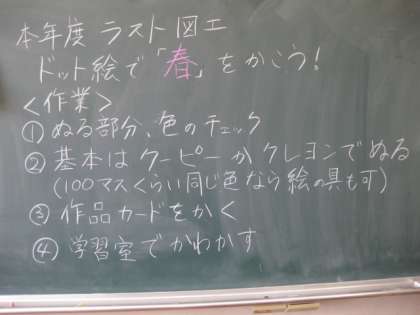 本年度 ラスト図工
ドット絵で「春」をかこう!
<作業>
①ぬる部分、色のチェック
②基本はクーピーかクレヨンでぬる
(100マスくらい同じ色なら絵の具も可)
③作品カードをかく
④学習室でかわかす